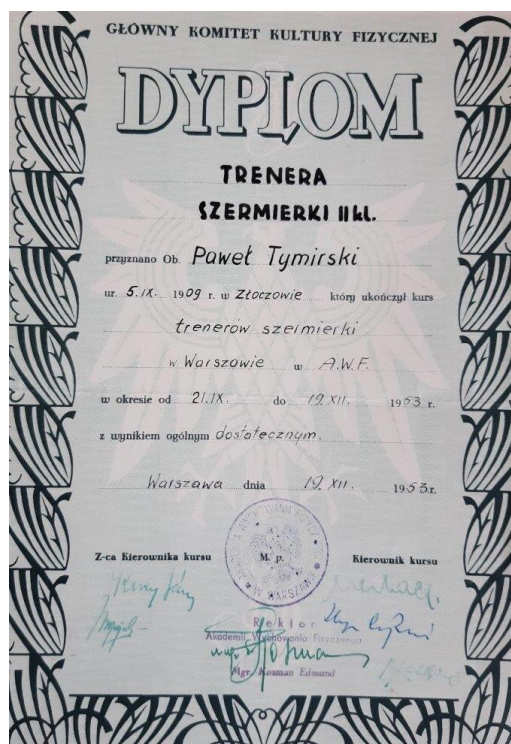 GŁÓWNY KOMITET KULTURY FIZYCZNEJ
DYPLOM
TRENERA
SZERMIERKI II kl.
przyznano Ob. Paweł Tymirski
ur. 5.IX. 1909 r. w Złoczowie który ukończył kurs
trenerów szermierki
w Warszawie w A.W.F.
w okresie od 21.IX. do 19.XII. 1953 r.
z wynikiem ogólnym dostatecznym.
Warszawa dnia 19.XII. 1953 r.
Z-ca Kierownika kursu M. p. Kierownik kursu
W WARSZAWIE
Rektor
Akademii Wychowania Fizycznego
Mgr. Kosman Edmund